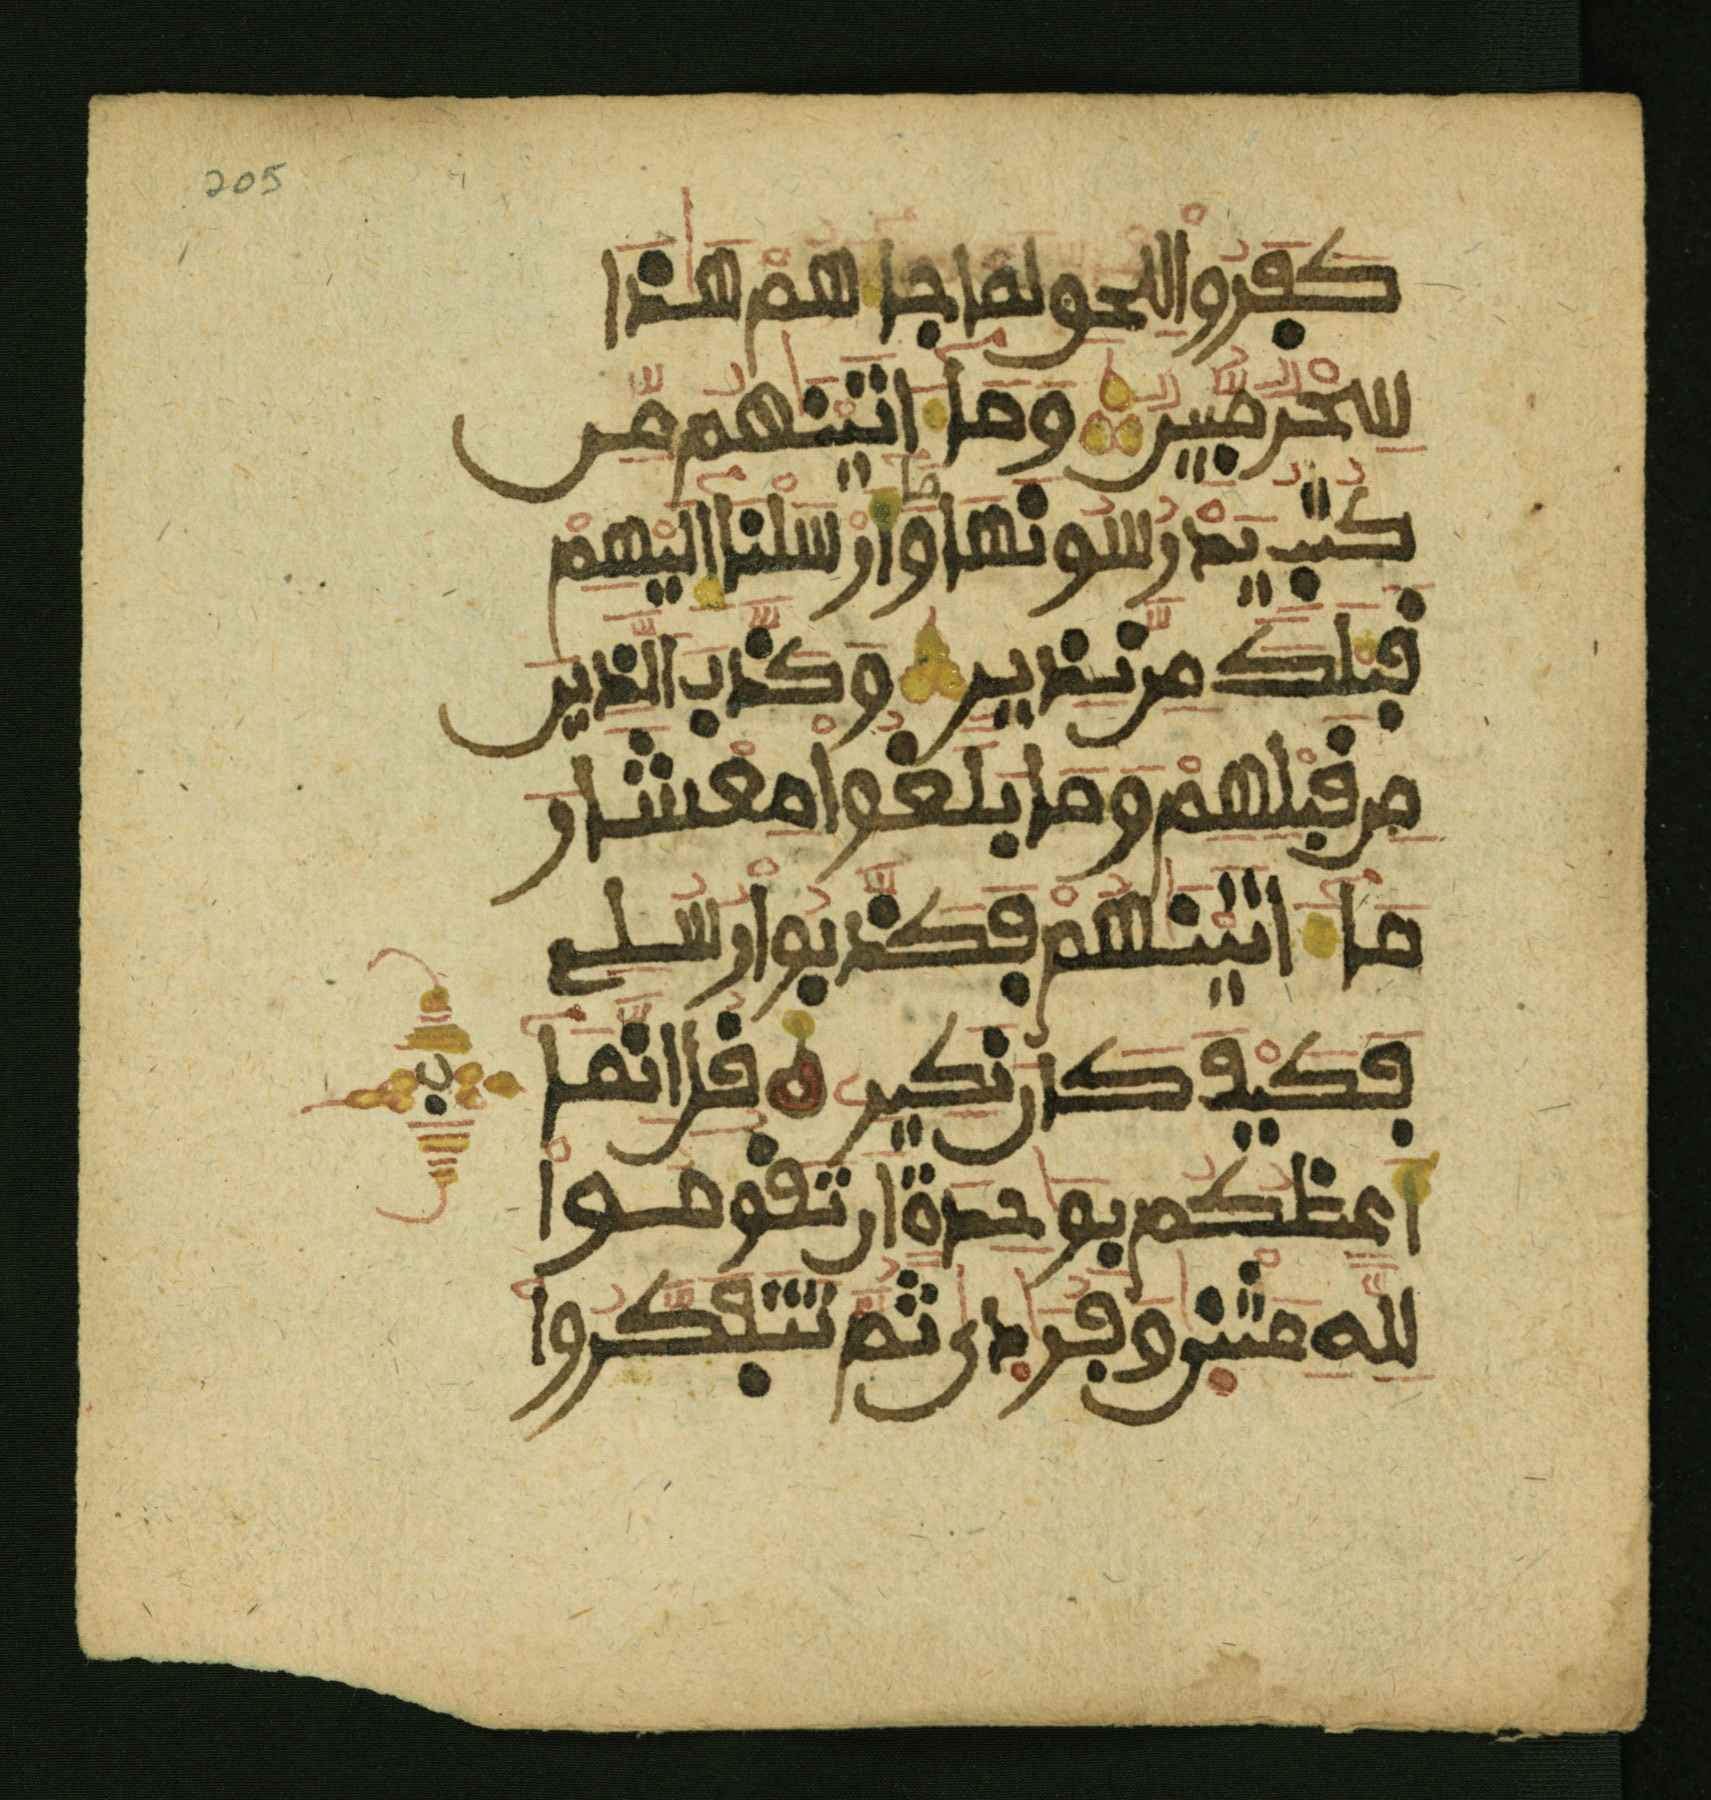 205
كَفَرُواْ لِلْحَقِّ لَمَّا جَاءَهُمْ هَٰذَا
إِلَّا سِحْرٌ مُّبِينٌ وَمَا ءَاتَيْنَٰهُم مِّن
كُتُبٍ يَدْرُسُونَهَا وَمَا أَرْسَلْنَا إِلَيْهِمْ
قَبْلَكَ مِن نَّذِيرٍ وَكَذَّبَ الَّذِينَ
مِن قَبْلِهِمْ وَمَا بَلَغُواْ مِعْشَارَ
مَا ءَاتَيْنَٰهُمْ فَكَذَّبُواْ رُسُلِي
فَكَيْفَ كَانَ نَكِيرِ قُلْ إِنَّمَا
ب
أَعِظُكُم بِوَٰحِدَةٍ أَن تَقُومُواْ
لِلَّهِ مَثْنَىٰ وَفُرَٰدَىٰ ثُمَّ تَتَفَكَّرُواْ